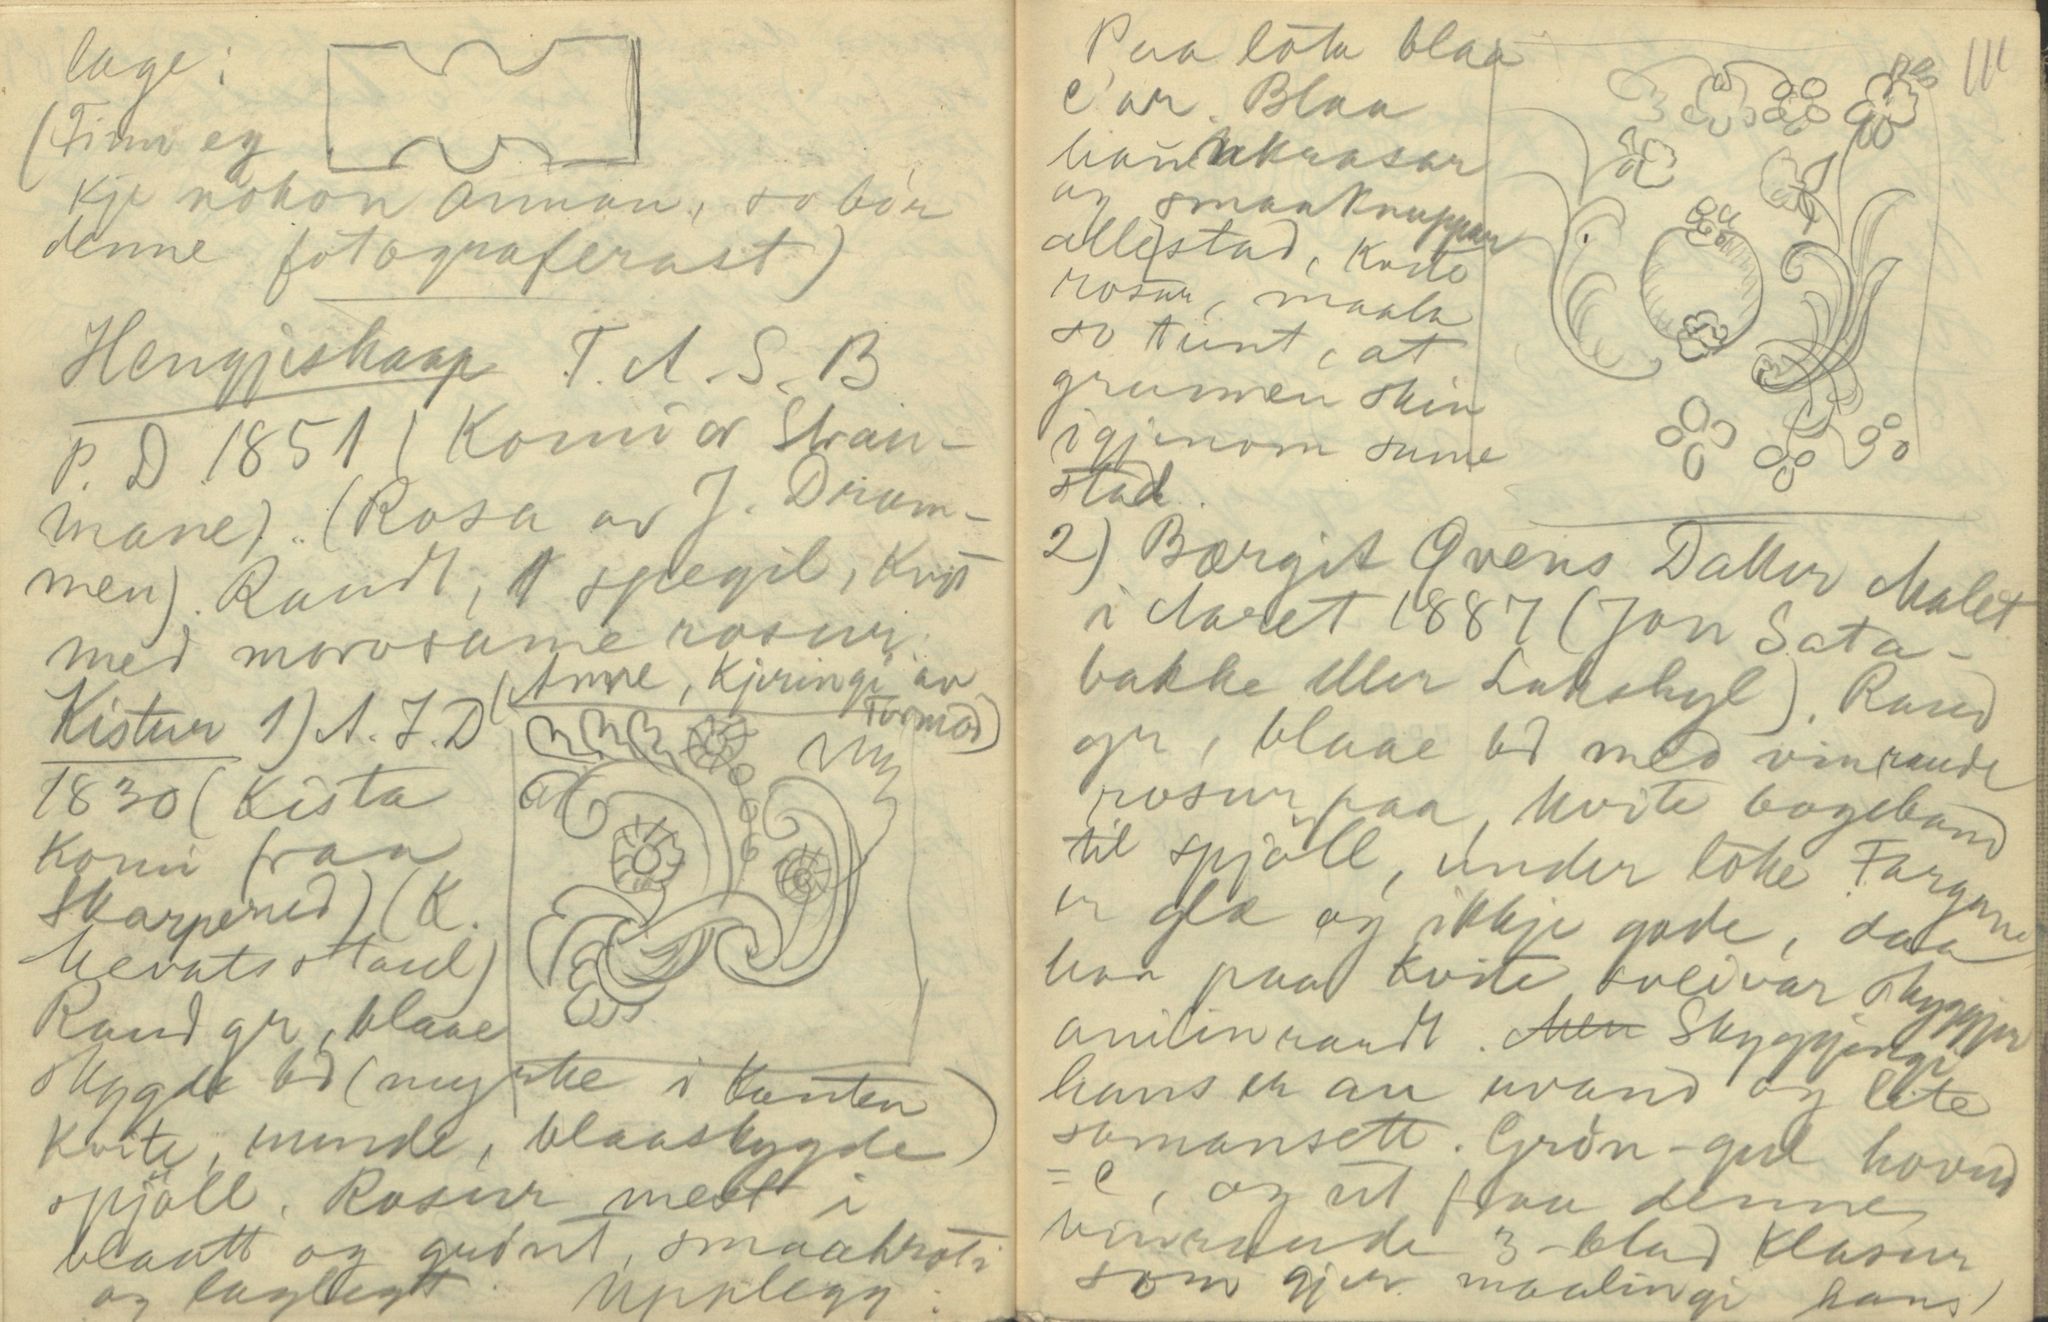 lage:
(Finn eg
kje nokon annan, so bör
denne fotograferast)
Hengjeskaap T. A. S. B
P. D 1851 (Komi or Strau-
mane). (Rosa av J. Dram-
men). Raudt, spegil, kvit
med morosame rosur.
Kistur 1) A. J. D (Anne, kjeringi av
Tormod)
1830 (Kista
komi fraa
Skarperud) (K.
Nevatsstaul)
Raud gr, blaae
skygde bd (myrke i kanten)
kvite, runde, blaaskygde
spjöll. Rosur mest i
blaatt og grönt, smaakroti
og laglegt. Upplegg:
111
Paa löta blaa
C'ar. Blaa
krasar
og smaaknuppar
allestad, kvite
rosur, maala
so tunt, at
grunnen skin
igjenom sume
stad.
2) Bærgit Qvens Datter Malet
i Aaret 1887 (Jon Sata-
bakke eller Lukshyl). Raud
gr, blaae bd med vinraude
rosur paa, kvite bogeband
til spjöll, under löke. Fargane
er og ikkje gode, daa
han paa kvite skyggjer
anilinraudt. Men Skyggjingi
hans er au uvand og lite
samansett. Grön-gul hovud
= C, og ut fraa denne
vinraude 3-blad klasur
som gjer maalingi hans